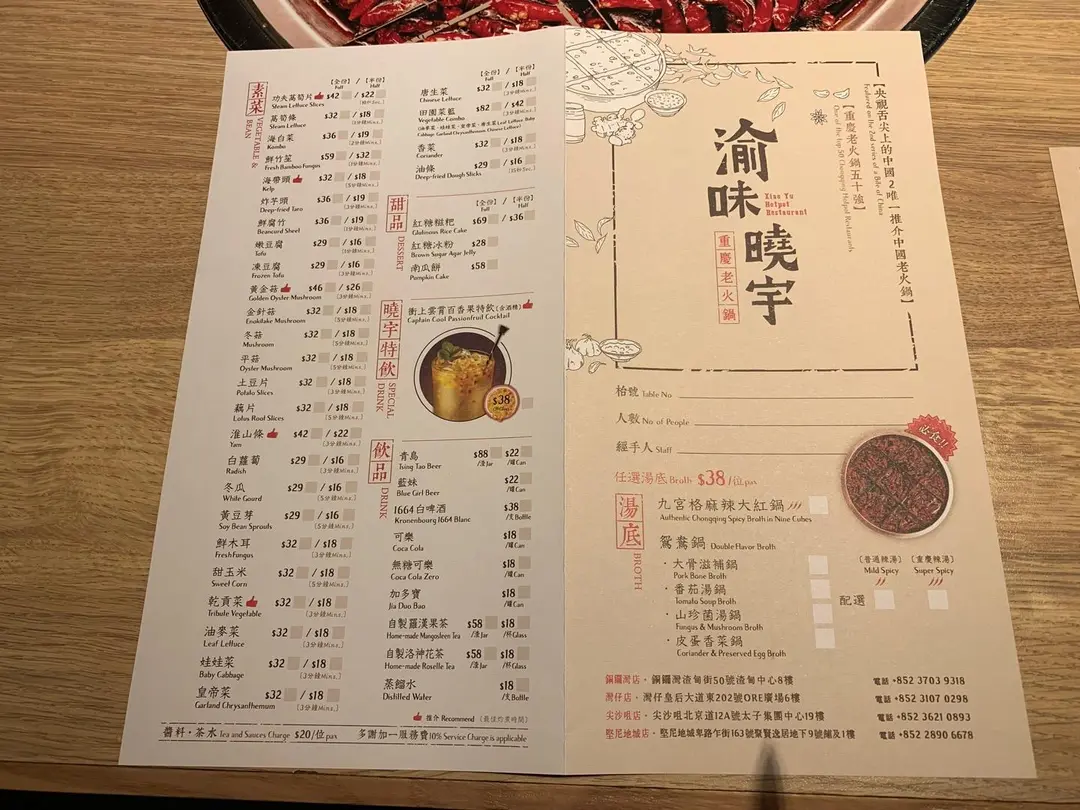 素菜 VEGETABLE & BEAN
【全份】/【半份】
Full Half
功夫萵筍片 $42 / $22
Steam Lettuce Slices
萵筍條 $32 / $18
Steam Lettuce
海白菜 $36 / $19
Kombo
鮮竹笙 $59 / $32
Fresh Bamboo Fungus
海帶頭 $32 / $18
Kelp
炸芋頭 $36 / $19
Deep-fried Taro
鮮腐竹 $36 / $19
Beancurd Sheet
嫩豆腐 $29 / $16
Tofu
凍豆腐 $29 / $16
Frozen Tofu
黃金菇 $46 / $26
Golden Oyster Mushroom
金針菇 $32 / $18
Enokitake Mushroom
冬菇 $32 / $18
Mushroom
平菇 $32 / $18
Oyster Mushroom
土豆片 $32 / $18
Potato Slices
藕片 $32 / $18
Lotus Root Slices
淮山條 $42 / $22
Yam
白蘿蔔 $29 / $16
Radish
冬瓜 $29 / $16
White Gourd
黃豆芽 $29 / $16
Soy Bean Sprouts
鮮木耳 $32 / $18
Fresh Fungus
甜玉米 $32 / $18
Sweet Corn
乾貢菜 $32 / $18
Tribute Vegetable
油麥菜 $32 / $18
Leaf Lettuce
娃娃菜 $32 / $18
Baby Cabbage
皇帝菜 $32 / $18
Garland Chrysanthemum
【全份】/【半份】
Full Half
唐生菜 $32 / $18
Chinese Lettuce
田園菜籃 $82 / $42
Vegetable Combo
香菜 $32 / $18
Coriander
油條 $29 / $16
Deep-fried Dough Sticks
甜品 DESSERT
【全份】/【半份】
Full Half
紅糖糍粑 $69 / $36
Glutinous Rice Cake
紅糖冰粉 $28
Brown Sugar Agar Jelly
南瓜餅 $58
Pumpkin Cake
曉宇特飲 SPECIAL DRINK
衝上雲霄百香果特飲(含酒精)
Captain Cool Passionfruit Cocktail
$38
飲品 DRINK
青島 $88 $22
Tsing Tao Beer /渣Jar /罐Can
藍妹 $22
Blue Girl Beer /罐Can
1664白啤酒 $38
Kronenbourg 1664 Blanc /支Bottle
可樂 $18
Coca Cola /罐Can
無糖可樂 $18
Coca Cola Zero /罐Can
加多寶 $18
Jia Duo Bao /罐Can
自製羅漢果茶 $58 $18
Home-made Mangosteen Tea /渣Jar /杯Glass
自製洛神花茶 $58 $18
Home-made Roselle Tea /渣Jar /杯Glass
蒸餾水 $18
Distilled Water /支Bottle
推介 Recommend (最佳灼煮時間)
醬料・茶水 Tea and Sauces Charge $20/位pax 多謝加一服務費10% Service Charge is applicable
【央視舌尖上的中國2唯一推介中國老火鍋】
Featured on the 2nd series of a Bite of China
【重慶老火鍋五十強】
One of the top 50 Chongqing Hotpot Restaurants
渝味曉宇
Xiao Yu
Hotpot
Restaurant
重慶老火鍋
枱號 Table No
人數 No of People
經手人 Staff
任選湯底 Broth $38/位pax
必食!!
湯底 BROTH
九宮格麻辣大紅鍋
Authentic Chongqing Spicy Broth in Nine Cubes
鴛鴦鍋 Double Flavor Broth
・大骨滋補鍋
Pork Bone Broth
・番茄湯鍋
Tomato Soup Broth
・山珍菌湯鍋
Fungus & Mushroom Broth
・皮蛋香菜鍋
Coriander & Preserved Egg Broth
配選
(普通辣湯) (重慶辣湯)
Mild Spicy Super Spicy
銅鑼灣店・銅鑼灣渣甸街50號渣甸中心8樓 電話 +852 3703 9318
灣仔店・灣仔皇后大道東202號ORE廣場6樓 電話 +852 3107 0298
尖沙咀店・尖沙咀北京道12A號太子集團中心19樓 電話 +852 3621 0893
堅尼地城店・堅尼地城卑路乍街163號聚賢逸居地下9號鋪及1樓 電話 +852 2890 6678